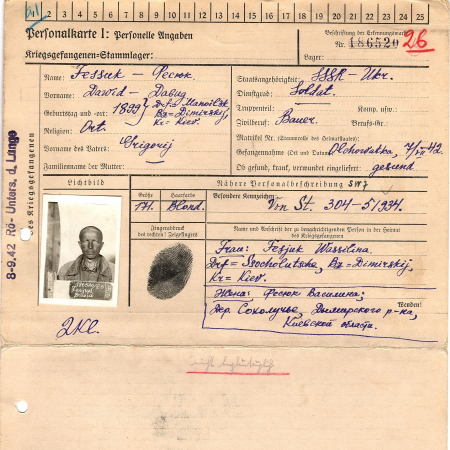 1 2 3 4 5 6 7 8 9 10 11 12 13 14 15 16 17 18 19 20 21 22 23 24 25
Personalkarte I: Personelle Angaben
Beschriftung der Erkennungsmarke
Nr. 186520 26
Kriegsgefangenen-Stammlager:
Lager:
Name: Fessuk - Фесюк
Staatsangehörigkeit: SSSR - Ukr.
Vorname: Dawid - Давид
Dienstgrad: Soldat
Geburtstag und -ort: 1899
Bz= Dimirskij
Kr= Kiev.
Truppenteil: Komp. usw.:
Religion: Ort.
Zivilberuf: Bauer. Berufs-Gr.:
Vorname des Vaters: Grigorij
Matrikel Nr. (Stammrolle des Heimatstaates):
Gefangennahme (Ort und Datum): Olchowatka, 7/VII 42
Familienname der Mutter:
Ob gesund, krank, verwundet eingeliefert: gesund
8-9.42 Rö-Unters. d. Lunge
des Kriegsgefangenen
Lichtbild
Nähere Personalbeschreibung
Größe Haarfarbe Besondere Kennzeichen:
171. Blond. Von St. 304-51934.
Fingerabdruck
des rechten! Zeigefingers
Name und Anschrift der zu benachrichtigenden Person in der Heimat
des Kriegsgefangenen
Frau: Fesjuk Wassilina,
Bz= Dimirskij,
Kr= Kiev.
Жена: Фесюк Василина;
дер. Соколучье, Дымарского р-на,
Киевской области.
Wenden!